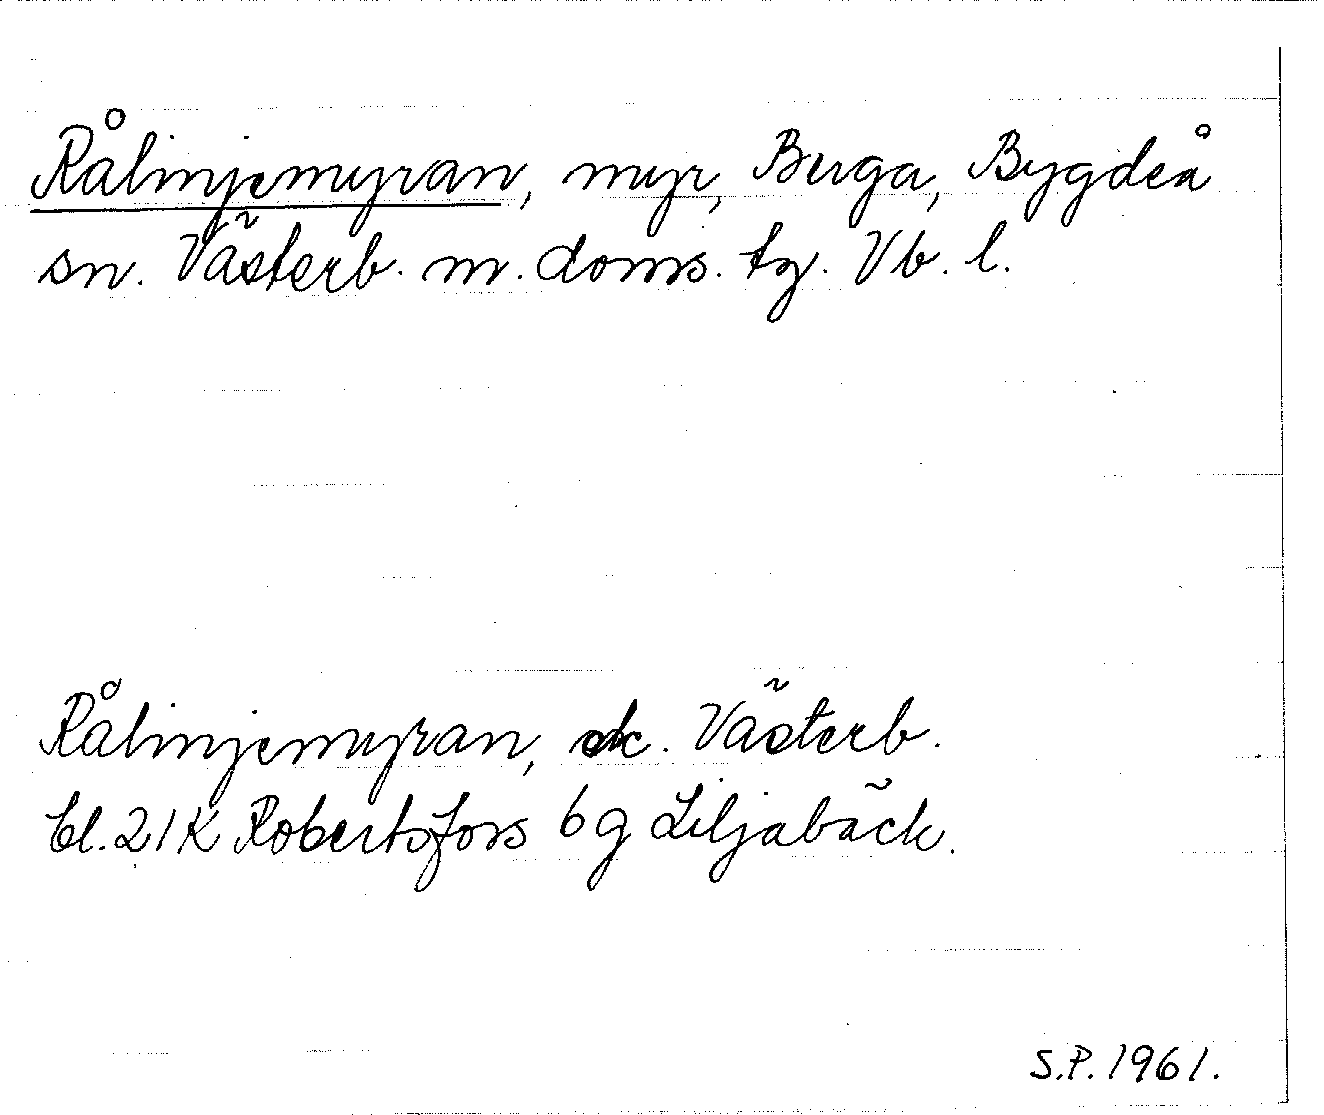 Rålinjemyran, myr, Berga, Bygdeå
sn. Västerb. m. doms. tg. Vb. l.
Rålinjemyran, ek. Västerb.
bl. 21K Robertsfors 6 g Liljabäck.
S.P. 1961.